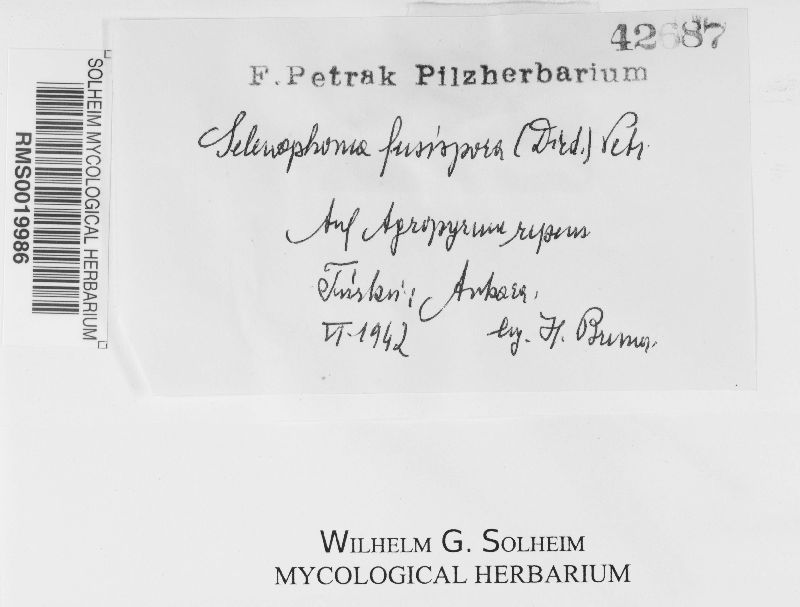 42687
F. Petrak Pilzherbarium
Selenophoma fusispora (Died.) Petr.
Auf Agropyrum repens
Türkei; Ankara,
VI. 1942 leg. H. Bremer.
SOLHEIM MYCOLOGICAL HERBARIUM
RMS0019986
WILHELM G. SOLHEIM
MYCOLOGICAL HERBARIUM